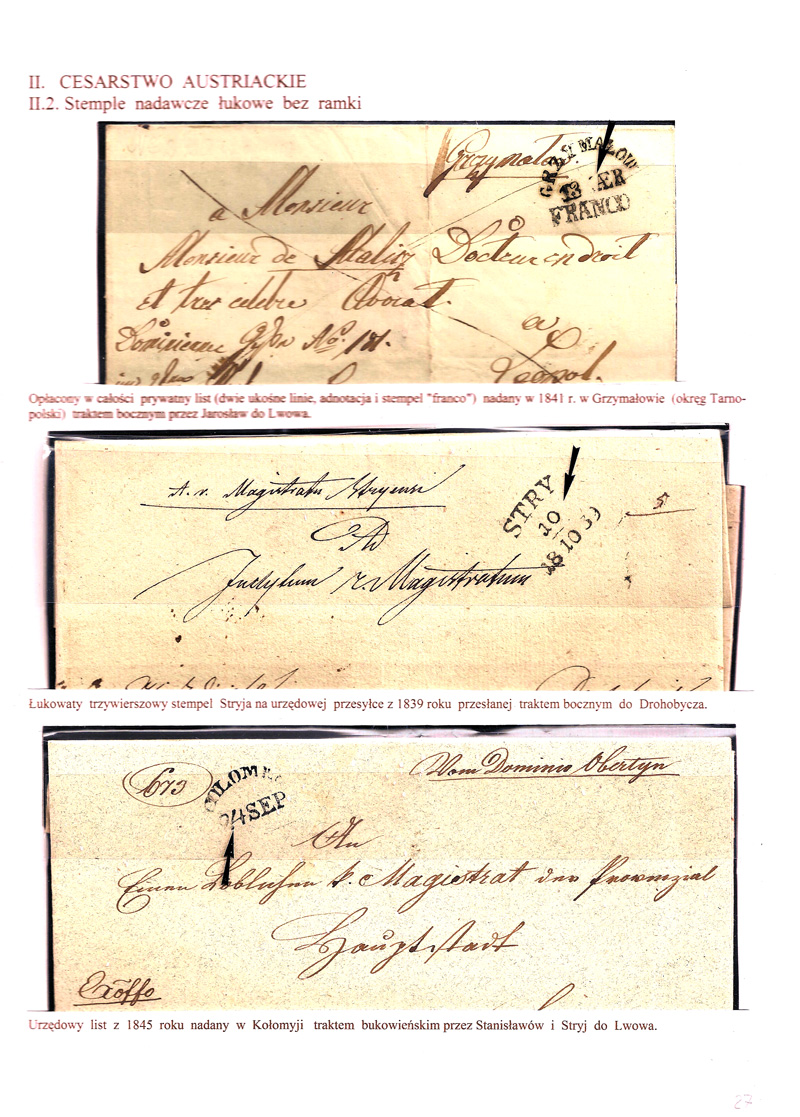 II. CESARSTWO AUSTRIACKIE
II.2. Stemple nadawcze łukowe bez ramki
Grzymałow
GRZYMALOW
13 MÆR
FRANCO
a Monsieur
Monsieur de Docteur en droit
et tres célebre Avocat.
No. 181.
a
Leopol.
Opłacony w całości prywatny list (dwie ukośne linie, adnotacja i stempel "franco") nadany w 1841 r. w Grzymałowie (okręg Tarno-
polski) traktem bocznym przez Jarosław do Lwowa.
Magistratu
STRY
10
18 10 39
5
Ad
Magistratum
Łukowaty trzywierszowy stempel Stryja na urzędowej przesyłce z 1839 roku przesłanej traktem bocznym do Drohobycza.
673
24 SEP
Vom Dominio Obertyn
An
Einen Löblichen k. Magistrat der Provinzial
Hauptstadt
Exoffo
Urzędowy list z 1845 roku nadany w Kołomyji traktem bukowieńskim przez Stanisławów i Stryj do Lwowa.
27